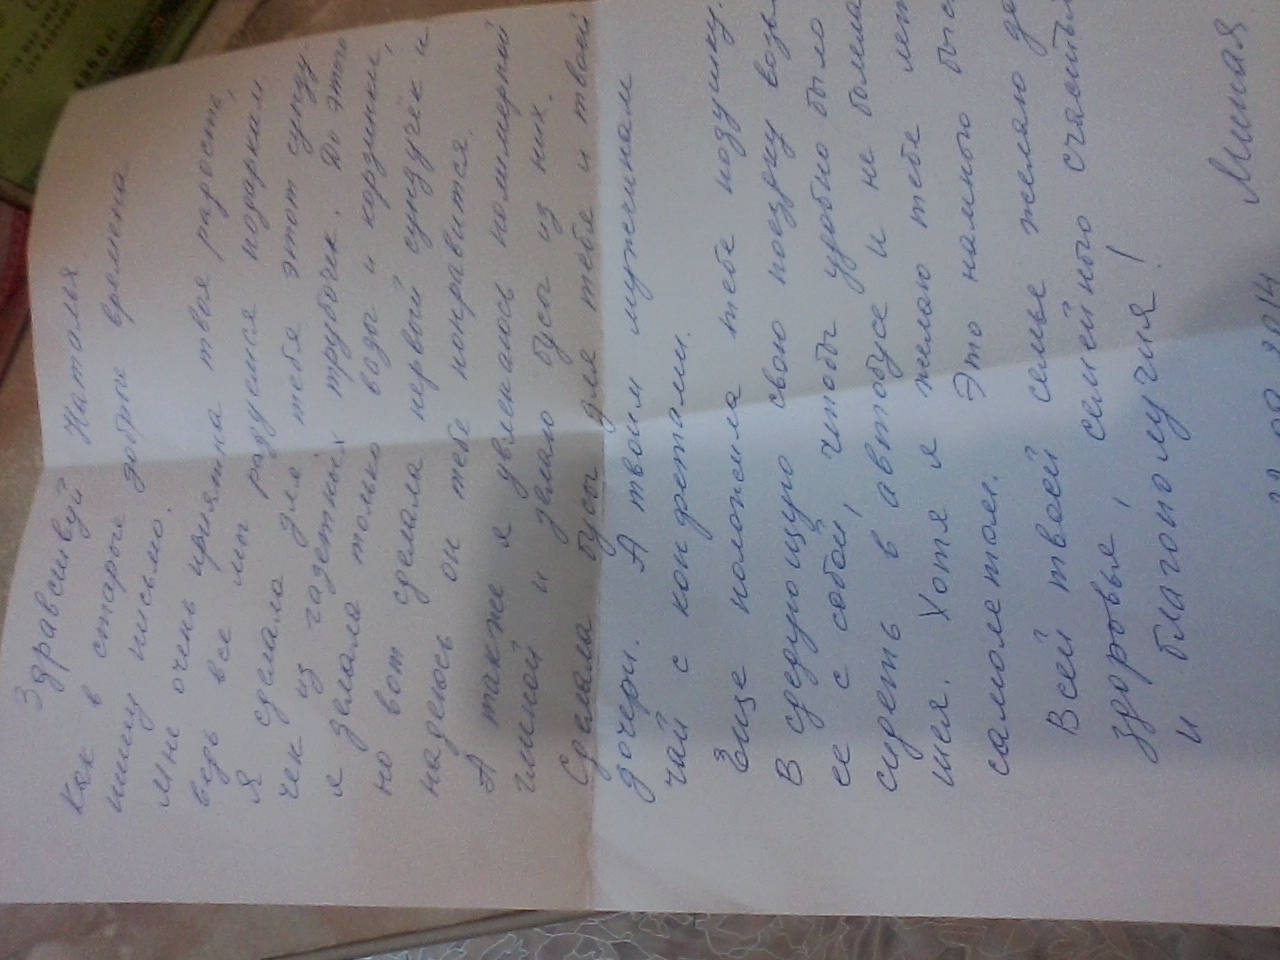 Здравствуй Наталья.
Как в старые добрые времена
пишу письмо.
Мне очень приятна твоя радость,
ведь все мы радуемся подаркам
Я сделала для тебя этот сунду-
чек из газетных трубочек. До этого
я делала только вазы и корзинки,
но вот сделала первый сундучек и
надеюсь он тебе понравится.
А также я увлекаюсь полимерной
глиной и делаю бусы из них.
Сделала бусы для тебя и твоей
дочери. А твоим мужчинам
чай с конфетами.
Еще положила тебе подушку.
В следующую свою поездку возьм
ее с собой, чтобы удобно было
сидеть в автобусе и не болела
шея. Хотя я желаю тебе лет
самолетом. Это намного быс
Всей твоей семье желаю до
здоровья, семейного счастья
и благополучия!
09 2014